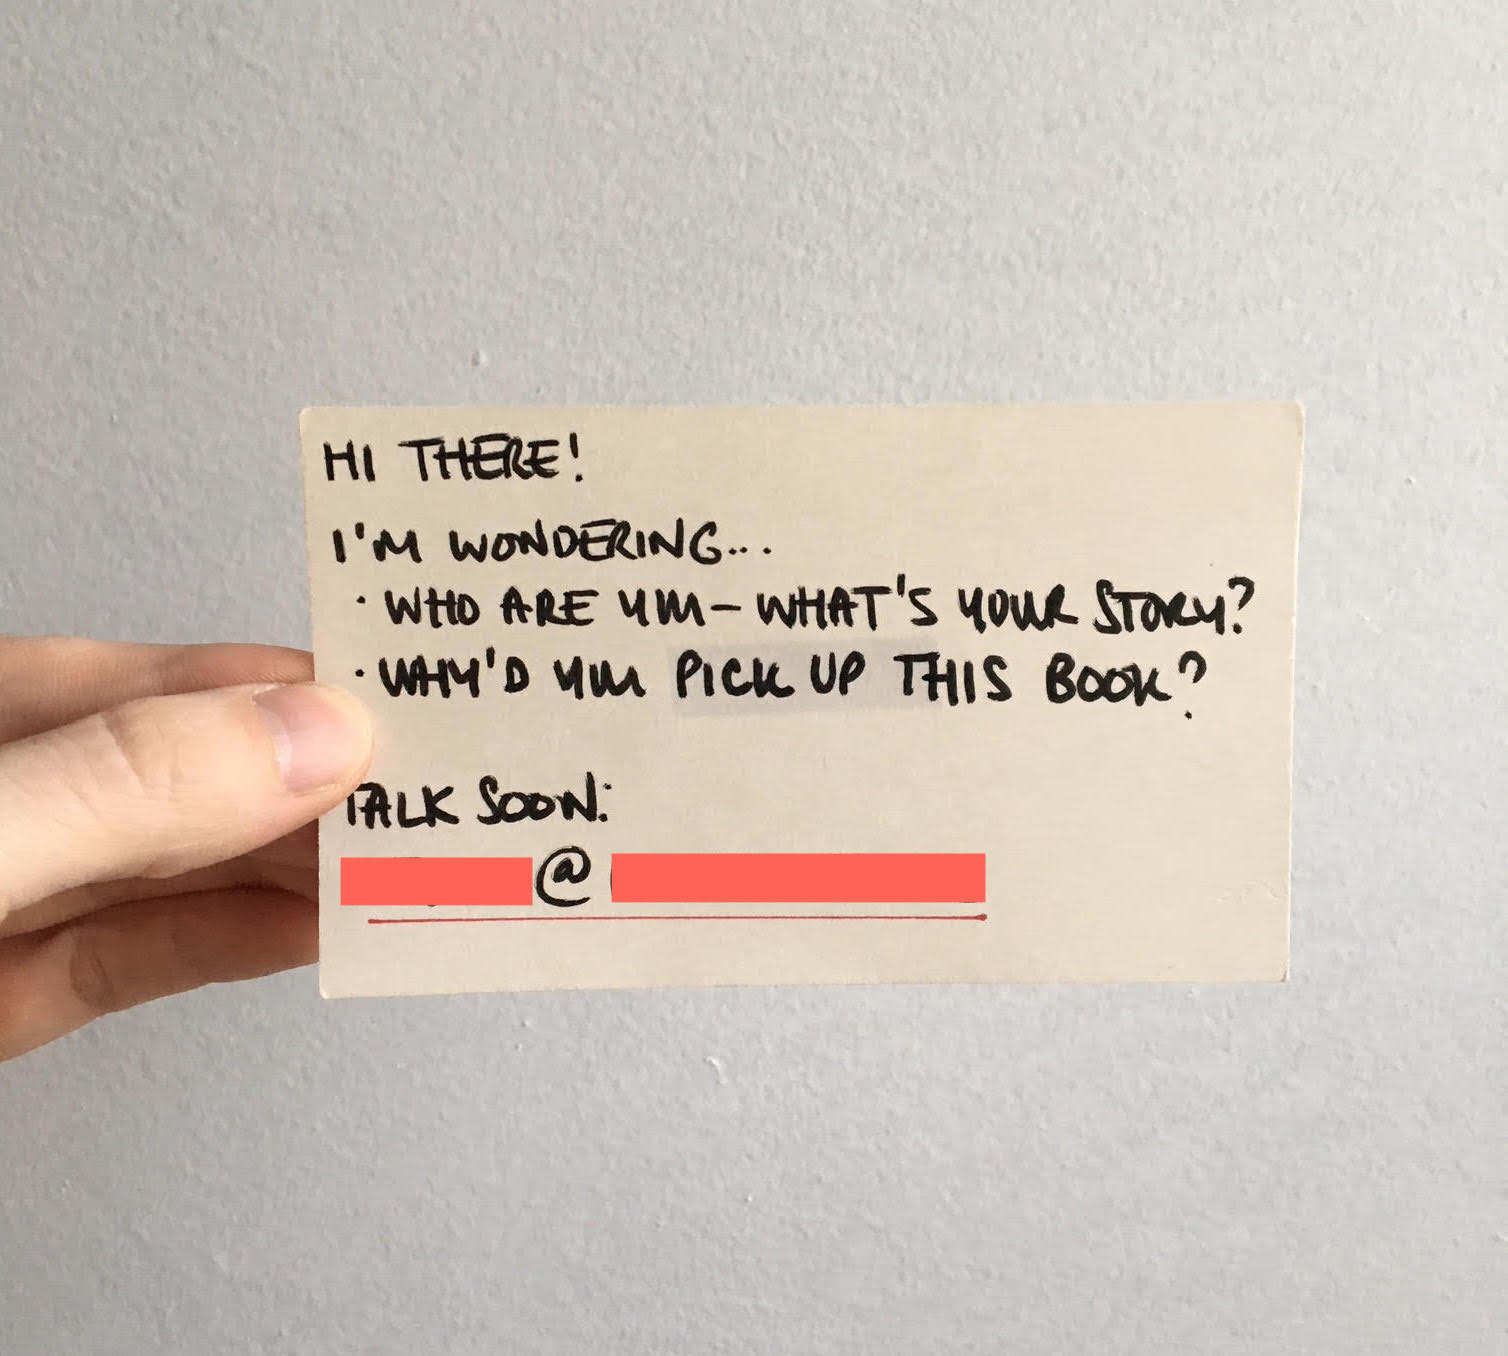 HI THERE!
I'M WONDERING...
· WHO ARE YOU - WHAT'S YOUR STORY?
· WHY'D YOU PICK UP THIS BOOK?
TALK SOON:
@